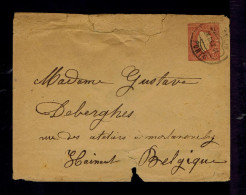 Madame Gustave
Deberghes
rue des ateliers à
Hainaut Belgique